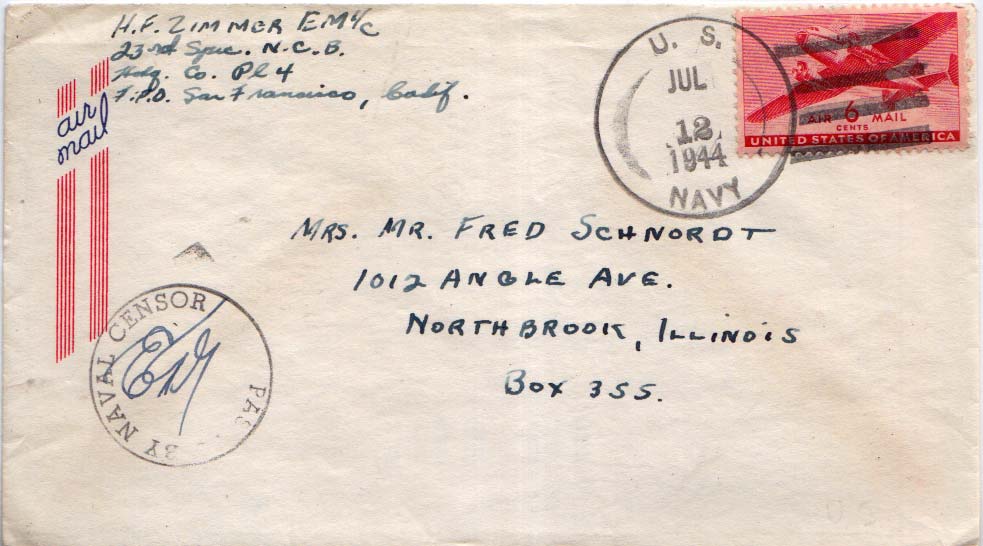 H.F. ZIMMER EM 1/C
23rd Spec. N.C.B.
Hdq. Co. Pl 4
F.P.O. San Francisco, Calif.
air
mail
U. S.
JUL
12
1944
NAVY
AIR 6 MAIL
CENTS
UNITED STATES OF AMERICA
MRS. MR. FRED SCHNORDT
1012 ANGLE AVE.
NORTHBROOK, ILLINOIS
BOX 355.
PAS BY NAVAL CENSOR
U S